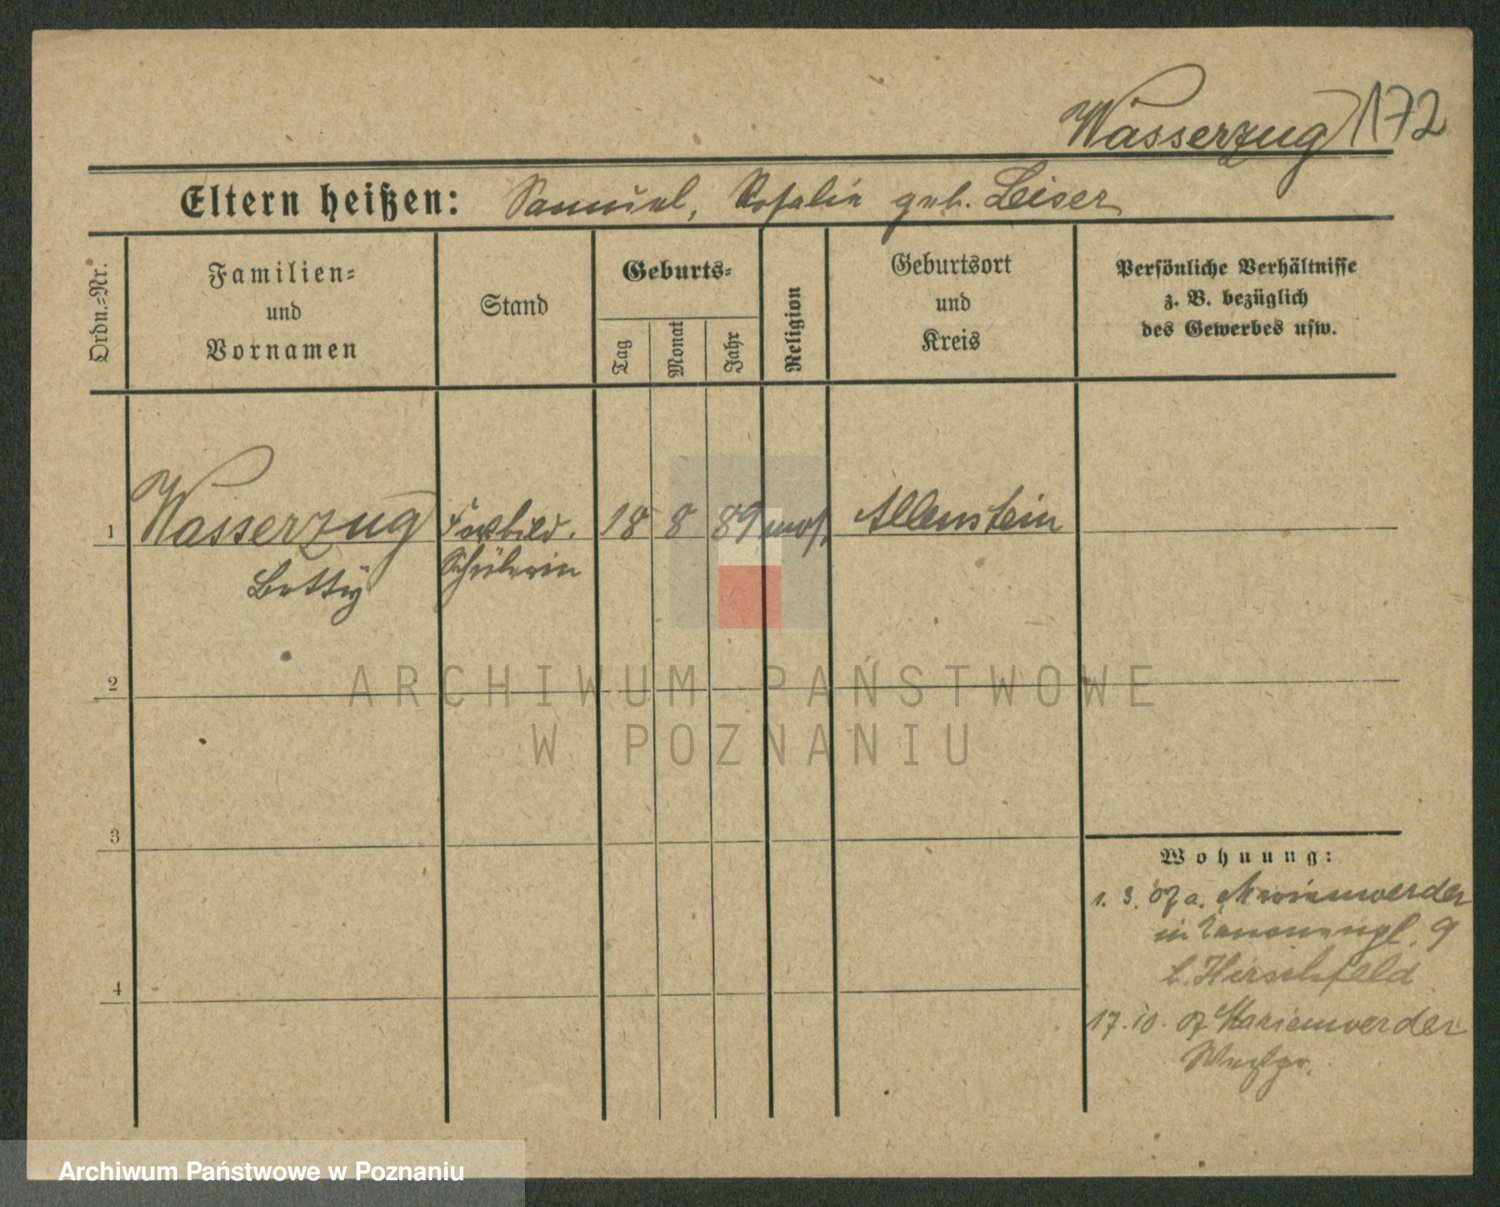 Wasserzug 172
Eltern heißen: Samuel, Rosalie geb. Leiser
Ordn.=Nr.
Familien=
und
Vornamen
Stand
Geburts=
Tag
Monat
Jahr
Religion
Geburtsort
und
Kreis
Persönliche Verhältnisse
z. B. bezüglich
des Gewerbes usw.
1 Wasserzug Fortbild. 18 8 89 mos. Allenstein
Betty Schülerin
2
3
4
Wohnung:
1. 3. 07 a. Marienwerder
in 9
b. Hirschfeld
17. 10. 07 Marienwerder
Westpr.
ARCHIWUM PAŃSTWOWE
W POZNANIU
Archiwum Państwowe w Poznaniu